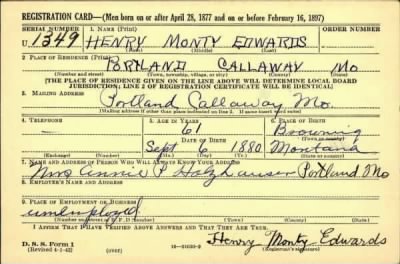 REGISTRATION CARD—(Men born on or after April 28, 1877 and on or before February 16, 1897)
SERIAL NUMBER 1. NAME (Print) ORDER NUMBER
U 1349 HENRY MONTY EDWARDS
(First) (Middle) (Last)
2. PLACE OF RESIDENCE (Print)
PORTLAND CALLAWAY MO
(Number and street) (Town, township, village, or city) (County) (State)
[THE PLACE OF RESIDENCE GIVEN ON THE LINE ABOVE WILL DETERMINE LOCAL BOARD
JURISDICTION; LINE 2 OF REGISTRATION CERTIFICATE WILL BE IDENTICAL]
3. MAILING ADDRESS
Portland Callaway Mo.
[Mailing address if other than place indicated on line 2. If same insert word same]
4. TELEPHONE 5. AGE IN YEARS 6. PLACE OF BIRTH
61 Browning
DATE OF BIRTH (Town or county)
Sept 6 1880 Montana
(Exchange) (Number) (Mo.) (Day) (Yr.) (State or country)
7. NAME AND ADDRESS OF PERSON WHO WILL ALWAYS KNOW YOUR ADDRESS
Mrs Annie P Holzhauser Portland Mo
8. EMPLOYER'S NAME AND ADDRESS
9. PLACE OF EMPLOYMENT OR BUSINESS
unemployed
(Number and street or R. F. D. number) (Town) (County) (State)
I AFFIRM THAT I HAVE VERIFIED ABOVE ANSWERS AND THAT THEY ARE TRUE.
D. S. S. Form 1 Henry Monty Edwards
(Revised 4-1-42) (over) (Registrant's signature)